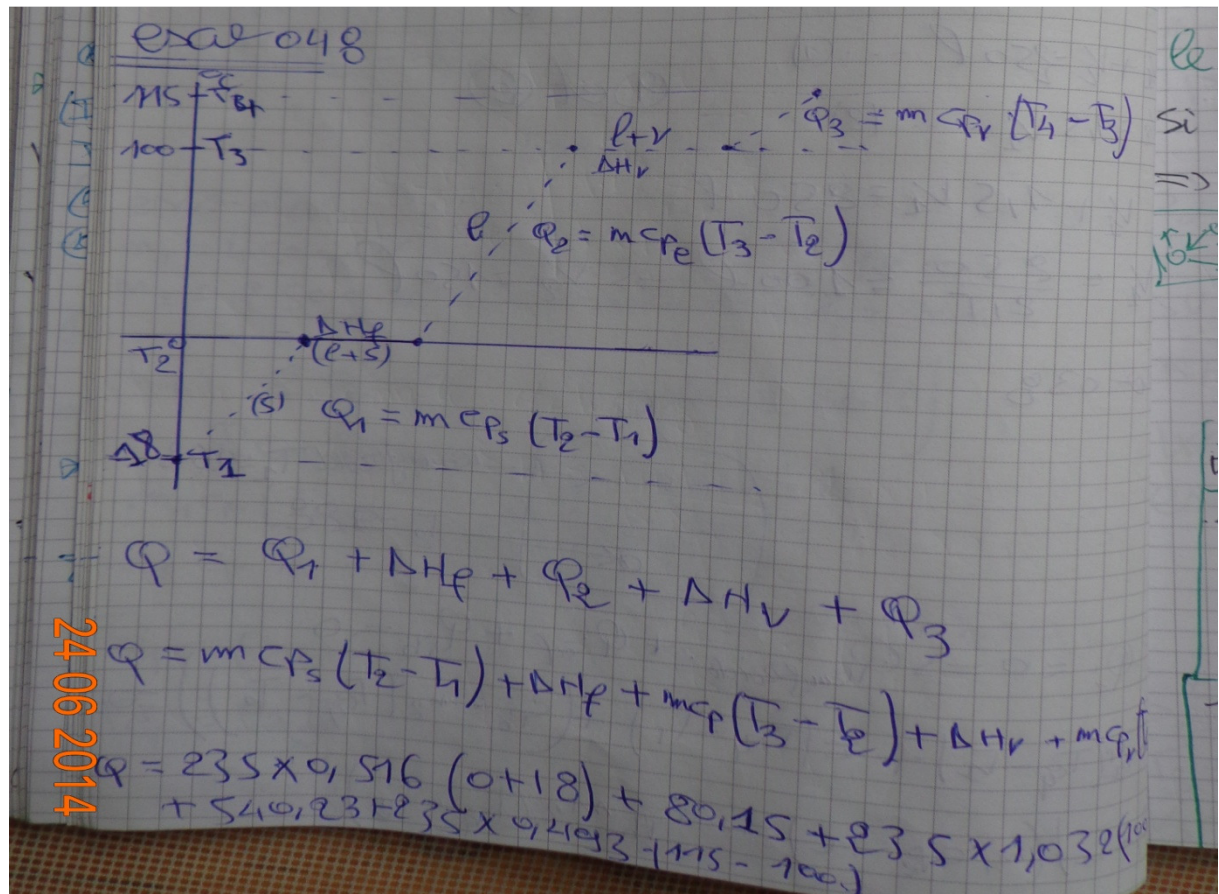 exo 048
°C
115 T4
100 T3
l+v
ΔHv
Q3 = m cpv (T4 - T3)
l Q2 = m cpl (T3 - T2)
T2 0
ΔHf
(l+s)
(s) Q1 = m cps (T2 - T1)
18 T1
Q = Q1 + ΔHf + Q2 + ΔHv + Q3
Q = m cps (T2 - T1) + ΔHf + m cp (T3 - T2) + ΔHv + m cpv (
Q = 235 x 0,516 (0+18) + 80,15 + 235 x 1,032 (100
+ 540,23 + 235 x 0,4093 (115 - 100)
le
Si
=>
24 06 2014